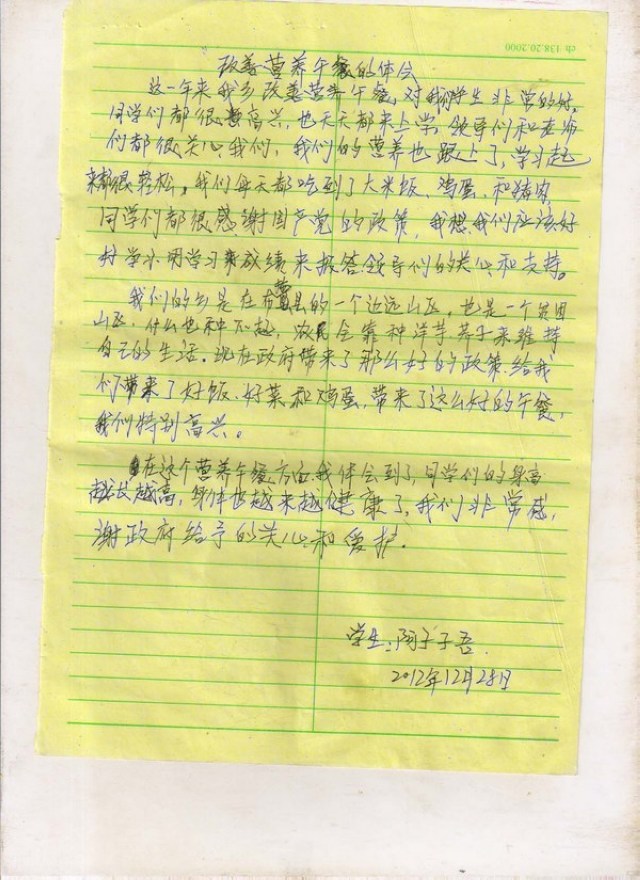 ch 138.20.2000
改善营养午餐的体会
这一年来我乡改善营养午餐,对我们学生非常的好,
同学们都很高兴,也天天都来上学,领导们和老师
们都很关心我们,我们的营养也跟上了,学习起
来都很轻松。我们每天都吃到了大米饭、鸡蛋、和猪肉,
同学们都很感谢国产党的政策,我想我们应该好
好学小明学习来成绩来报答领导们的关心和支持。
我们的乡是在布县的一个边远山区,也是一个贫困
山区,什么也种不起,农民全靠种洋芋荞子来维持
自己的生活。现在政府带来了那么好的政策,给我
们带来了好饭、好菜、和鸡蛋,带来了这么好的午餐,
我们特别高兴。
在这个营养午餐方面我体会到了,同学们的身高
越长越高,身体也越来越健康了,我们非常感
谢政府给予的关心和爱护.
学生:阿子子吾.
2012年12月28日